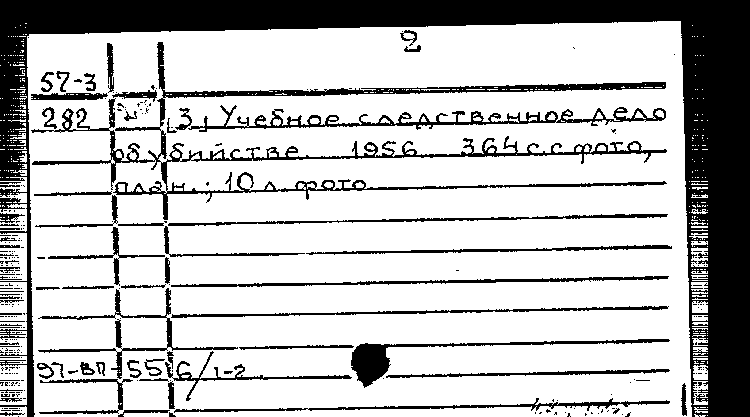 2
57-3
282 [3] Учебное следственное дело
об убийстве. 1956. 364 с. с фото,
план.; 10 л. фото.
97-ВП-5516/1-2